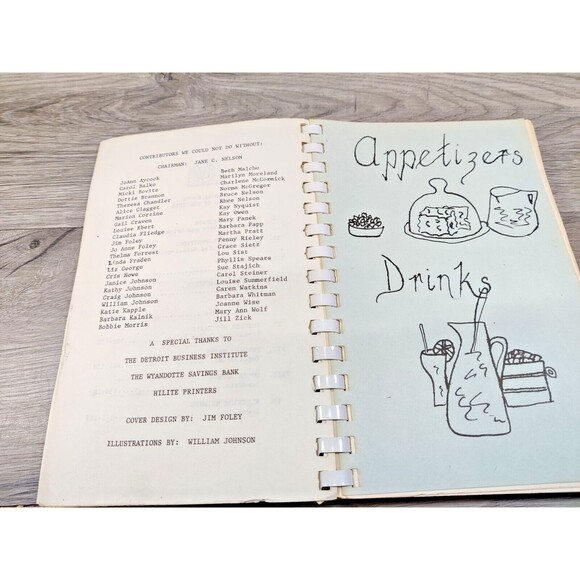 CONTRIBUTORS WE COULD NOT DO WITHOUT:
CHAIRMAN: JANE C. NELSON
JoAnn Aycock
Carol Balko
Nicki Bovitz
Dottie Brannon
Theresa Chandler
Alice Clagget
Marion Corsine
Gail Craven
Louise Ebert
Claudia Fliedge
Jim Foley
Jo Anne Foley
Thelma Forrest
Linda Fraden
Liz George
Cris Howe
Janice Johnson
Kathy Johnson
Craig Johnson
William Johnson
Katie Kapple
Barbara Kalnik
Bobbie Morris
Beth Malcho
Marilyn Moreland
Charlene McCormick
Norma McGregor
Bruce Nelson
Rhee Nelson
Kay Nyquist
Kay Owen
Mary Panek
Barbara Papp
Martha Pratt
Penny Risley
Grace Sietz
Lou Sist
Phyllis Speara
Sue Stajich
Carol Steiner
Louise Summerfield
Caren Watkins
Barbara Whitman
Joanne Wise
Mary Ann Wolf
Jill Zick
A SPECIAL THANKS TO
THE DETROIT BUSINESS INSTITUTE
THE WYANDOTTE SAVINGS BANK
HILITE PRINTERS
COVER DESIGN BY: JIM FOLEY
ILLUSTRATIONS BY: WILLIAM JOHNSON
Appetizers
Drinks